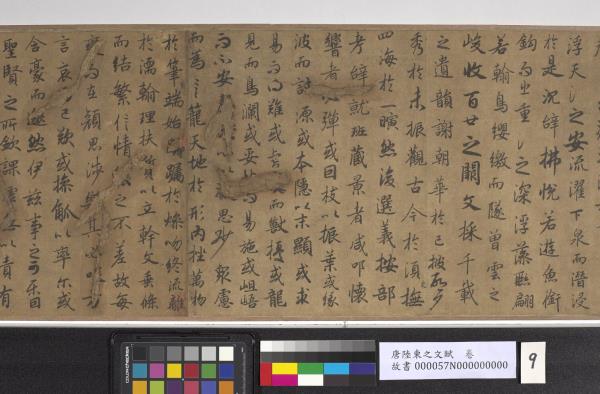 浮天淵之安流濯下泉而潛浸
於是沉辭怫悅若遊魚銜
鉤而出重淵之深浮藻聯翩
若翰鳥纓繳而墜曾雲之
峻收百世之闕文採千載
之遺韻謝朝華於已披啟夕
秀於未振觀古今於須撫
四海於一瞚然後選義按部
考辭就班藏景者咸叩懷
響者必彈或因枝以振葉或緣
波而討源或本隱以末顯或求
易而得難或言而獸擾或龍
見而鳥瀾或妥帖而易施或岨峿
而不安以思眇眾慮
而為言籠天地於形內挫萬物
於筆端始躑躅於燥吻終流離
於濡翰理扶質以立幹文垂條
而結繁信情之不差故每
變而在顏思涉樂其必笑方
言哀已歎或操觚以率尔或
含豪而邈然伊茲事之可樂固
聖賢之所欽課虛無以責有
唐陸柬之文賦 卷
故書 000057N000000000
9